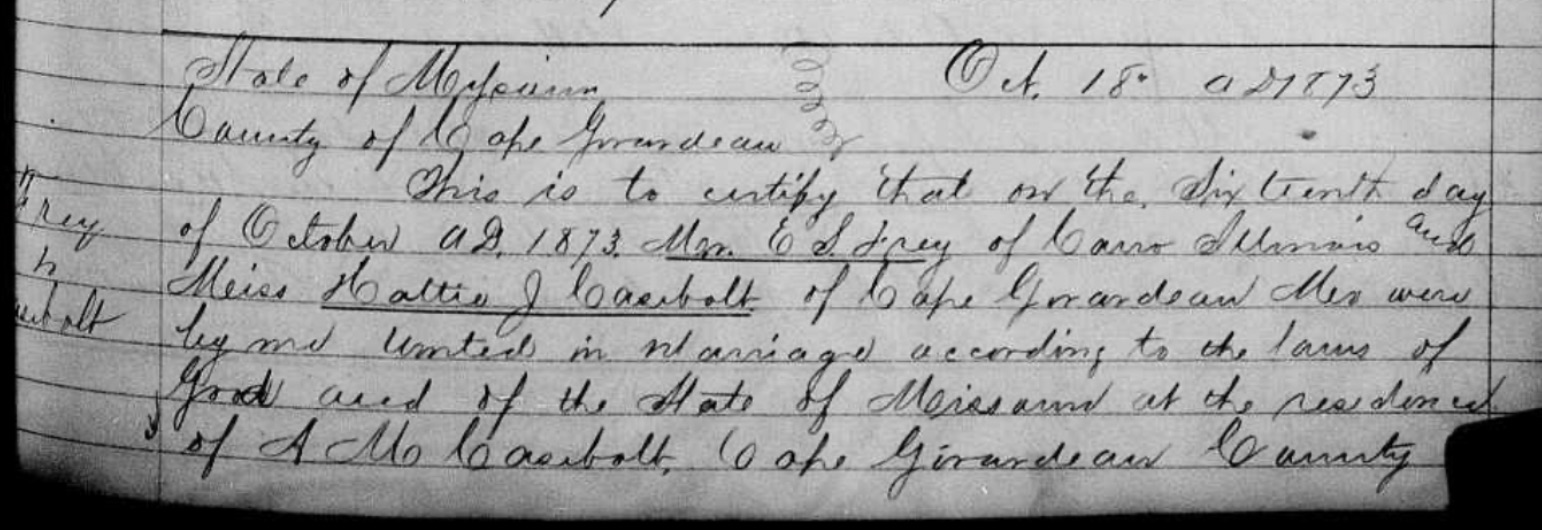 State of Missouri Oct. 18. AD 1873
County of Cape Girardeau
This is to certify that on the Sixteenth day
of October AD. 1873. Mr. E S. Frey of Cairo Illinois and
Miss Hattie J Casebolt of Cape Girardeau Mo were
by me United in Marriage according to the laws of
God and of the State of Missouri at the residence
of A M Casebolt, Cape Girardeau County
Frey
to